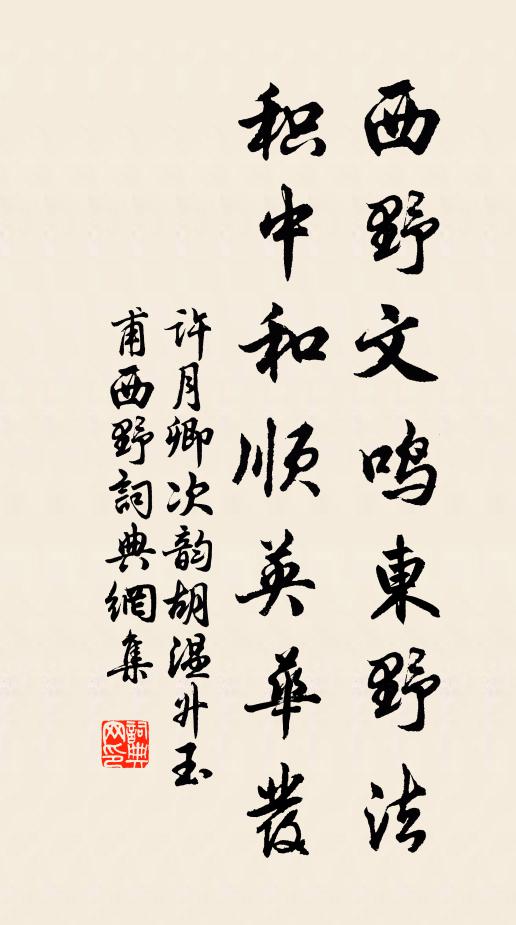 西野文鸣東野法
积中和顺英華發
許月卿次韵胡温升玉
甫西野詞典網集
詞典
网印